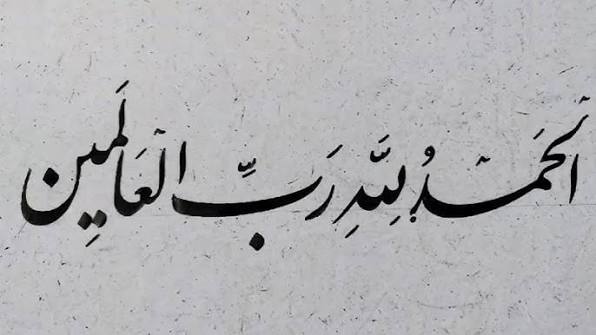 الْحَمْدُ لِلَّهِ رَبِّ الْعَالَمِين